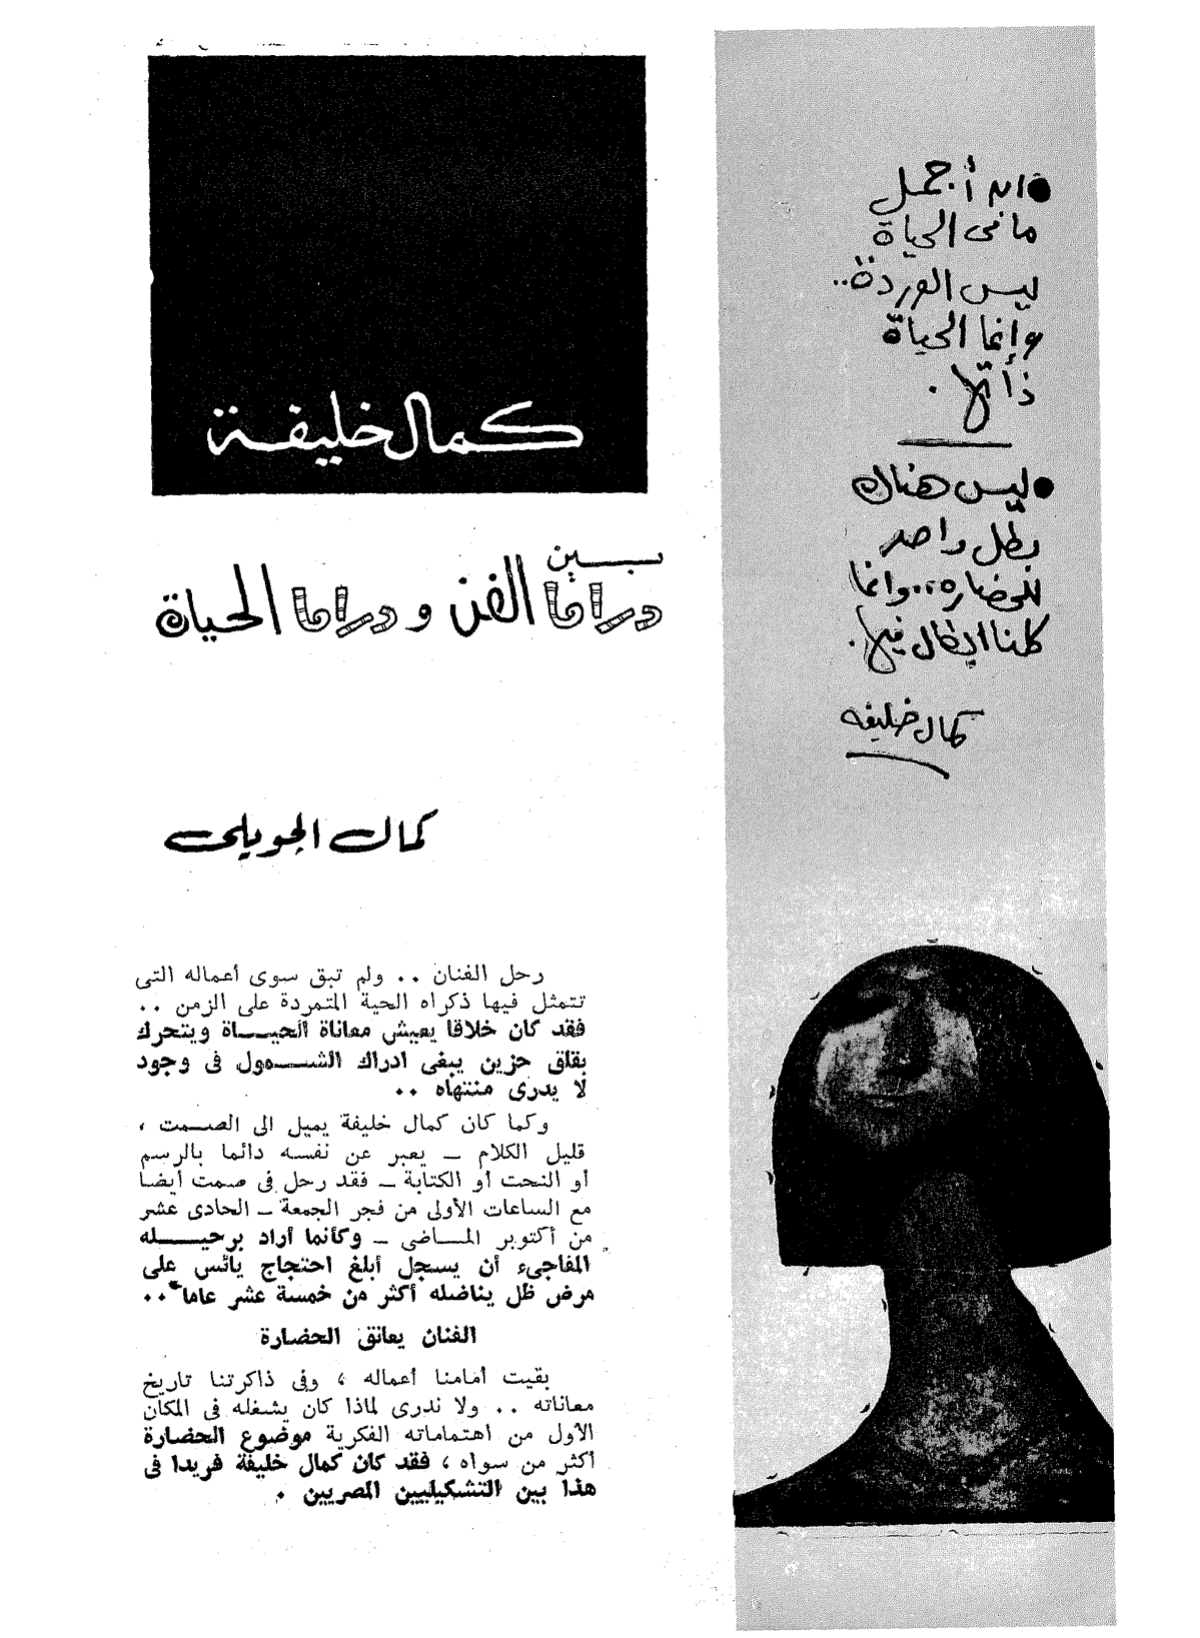 ● ان أجمل
ما فى الحياة
ليس الوردة..
وإنما الحياة
ذاتها .
● ليس هناك
بطل واحد
للحضارة.. وانما
كلنا ابطال فيها .
كمال خليفه
كمال خليفة
بين
دراما الفن و دراما الحياة
كمال الجويلى
رحل الفنان .. ولم تبق سوى أعماله التى
تتمثل فيها ذكراه الحية المتمردة على الزمن ..
فقد كان خلاقا يعيش معاناة الحيـاة ويتحرك
بقلق حزين يبغى ادراك الشـمول فى وجود
لا يدرى منتهاه ..
وكما كان كمال خليفة يميل الى الصـمت ،
قليل الكلام – يعبر عن نفسه دائما بالرسم
أو النحت أو الكتابة – فقد رحل فى صمت أيضا
مع الساعات الأولى من فجر الجمعة – الحادى عشر
من أكتوبر المـاضى – وكأنما أراد برحيـله
المفاجىء أن يسجل أبلغ احتجاج يائس على
مرض ظل يناضله أكثر من خمسة عشر عاما ..
الفنان يعانق الحضارة
بقيت أمامنا أعماله ، وفى ذاكرتنا تاريخ
معاناته .. ولا ندرى لماذا كان يشغله فى المكان
الأول من اهتماماته الفكرية موضوع الحضارة
أكثر من سواه ، فقد كان كمال خليفة فريدا فى
هذا بين التشكيليين المصريين .